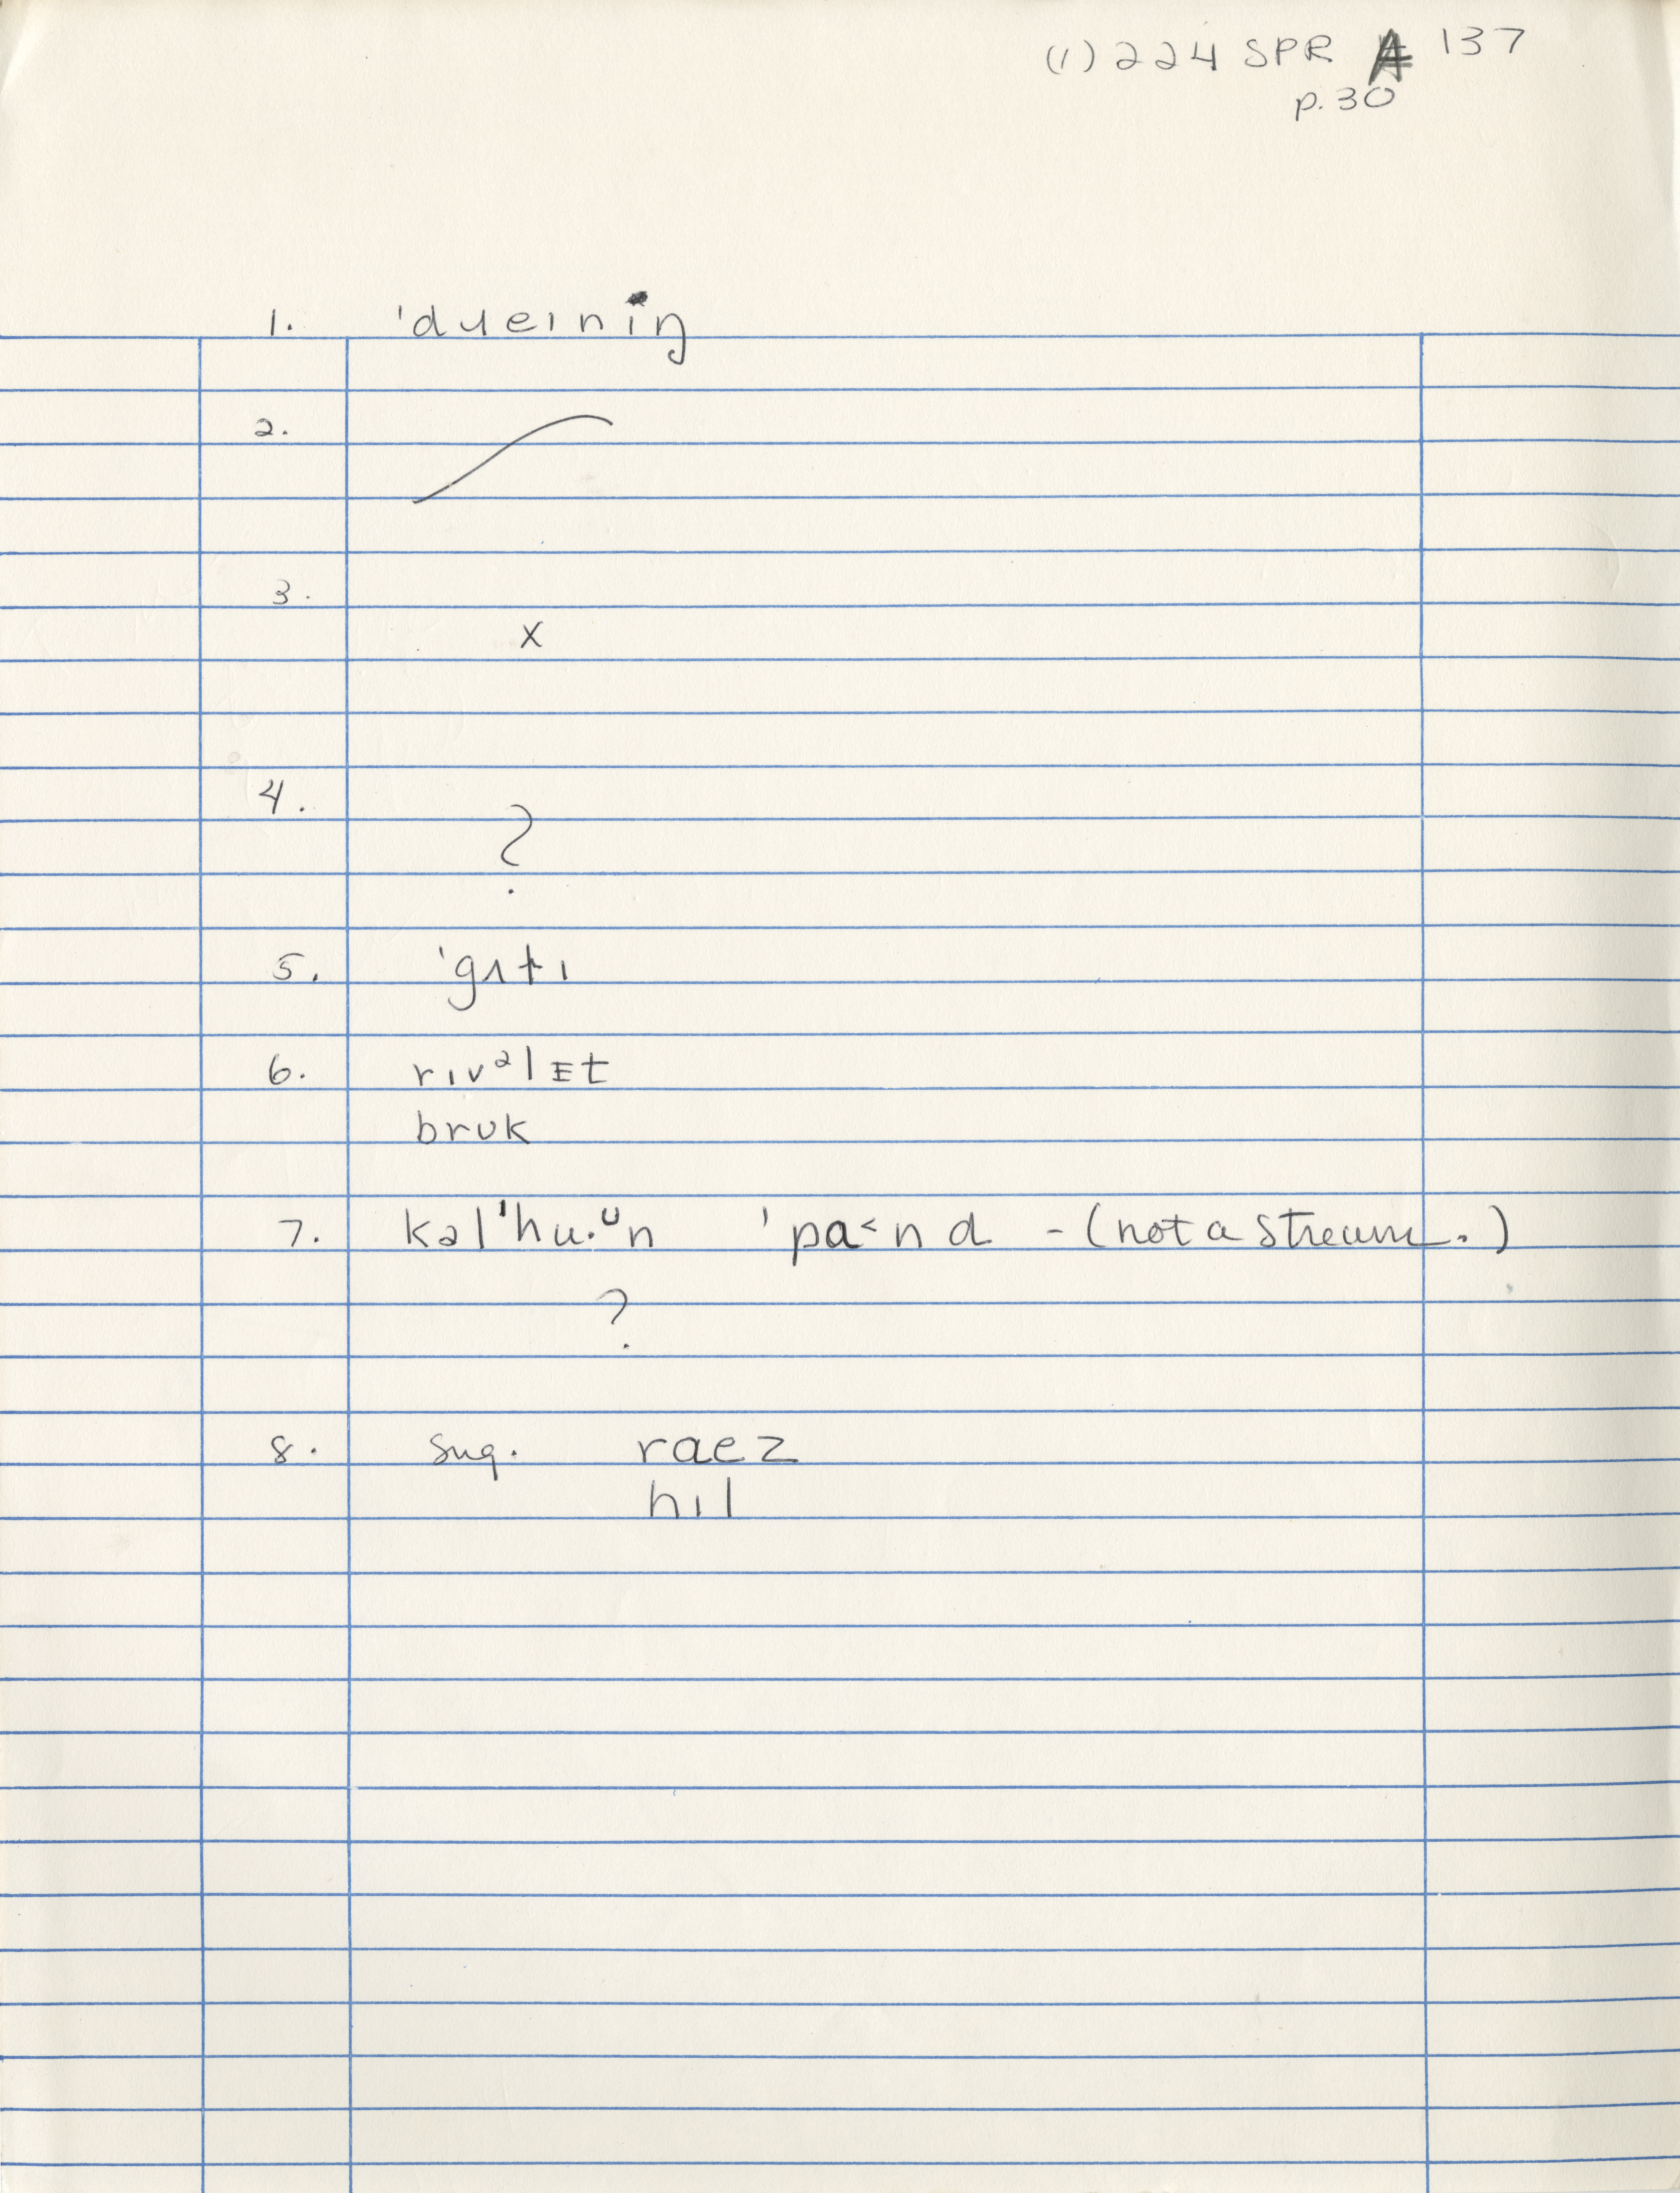 (1) 224 SPR A 137
p. 30
1. 'dɹeɪnɪŋ
2.
3.
X
4.
?
5. 'gʌtɪ
6. rɪvᵊlɛt
brʊk
7. kəl'hu.ᵁn 'pa<nd - (not a stream.)
?
8. sug. raez
hɪl